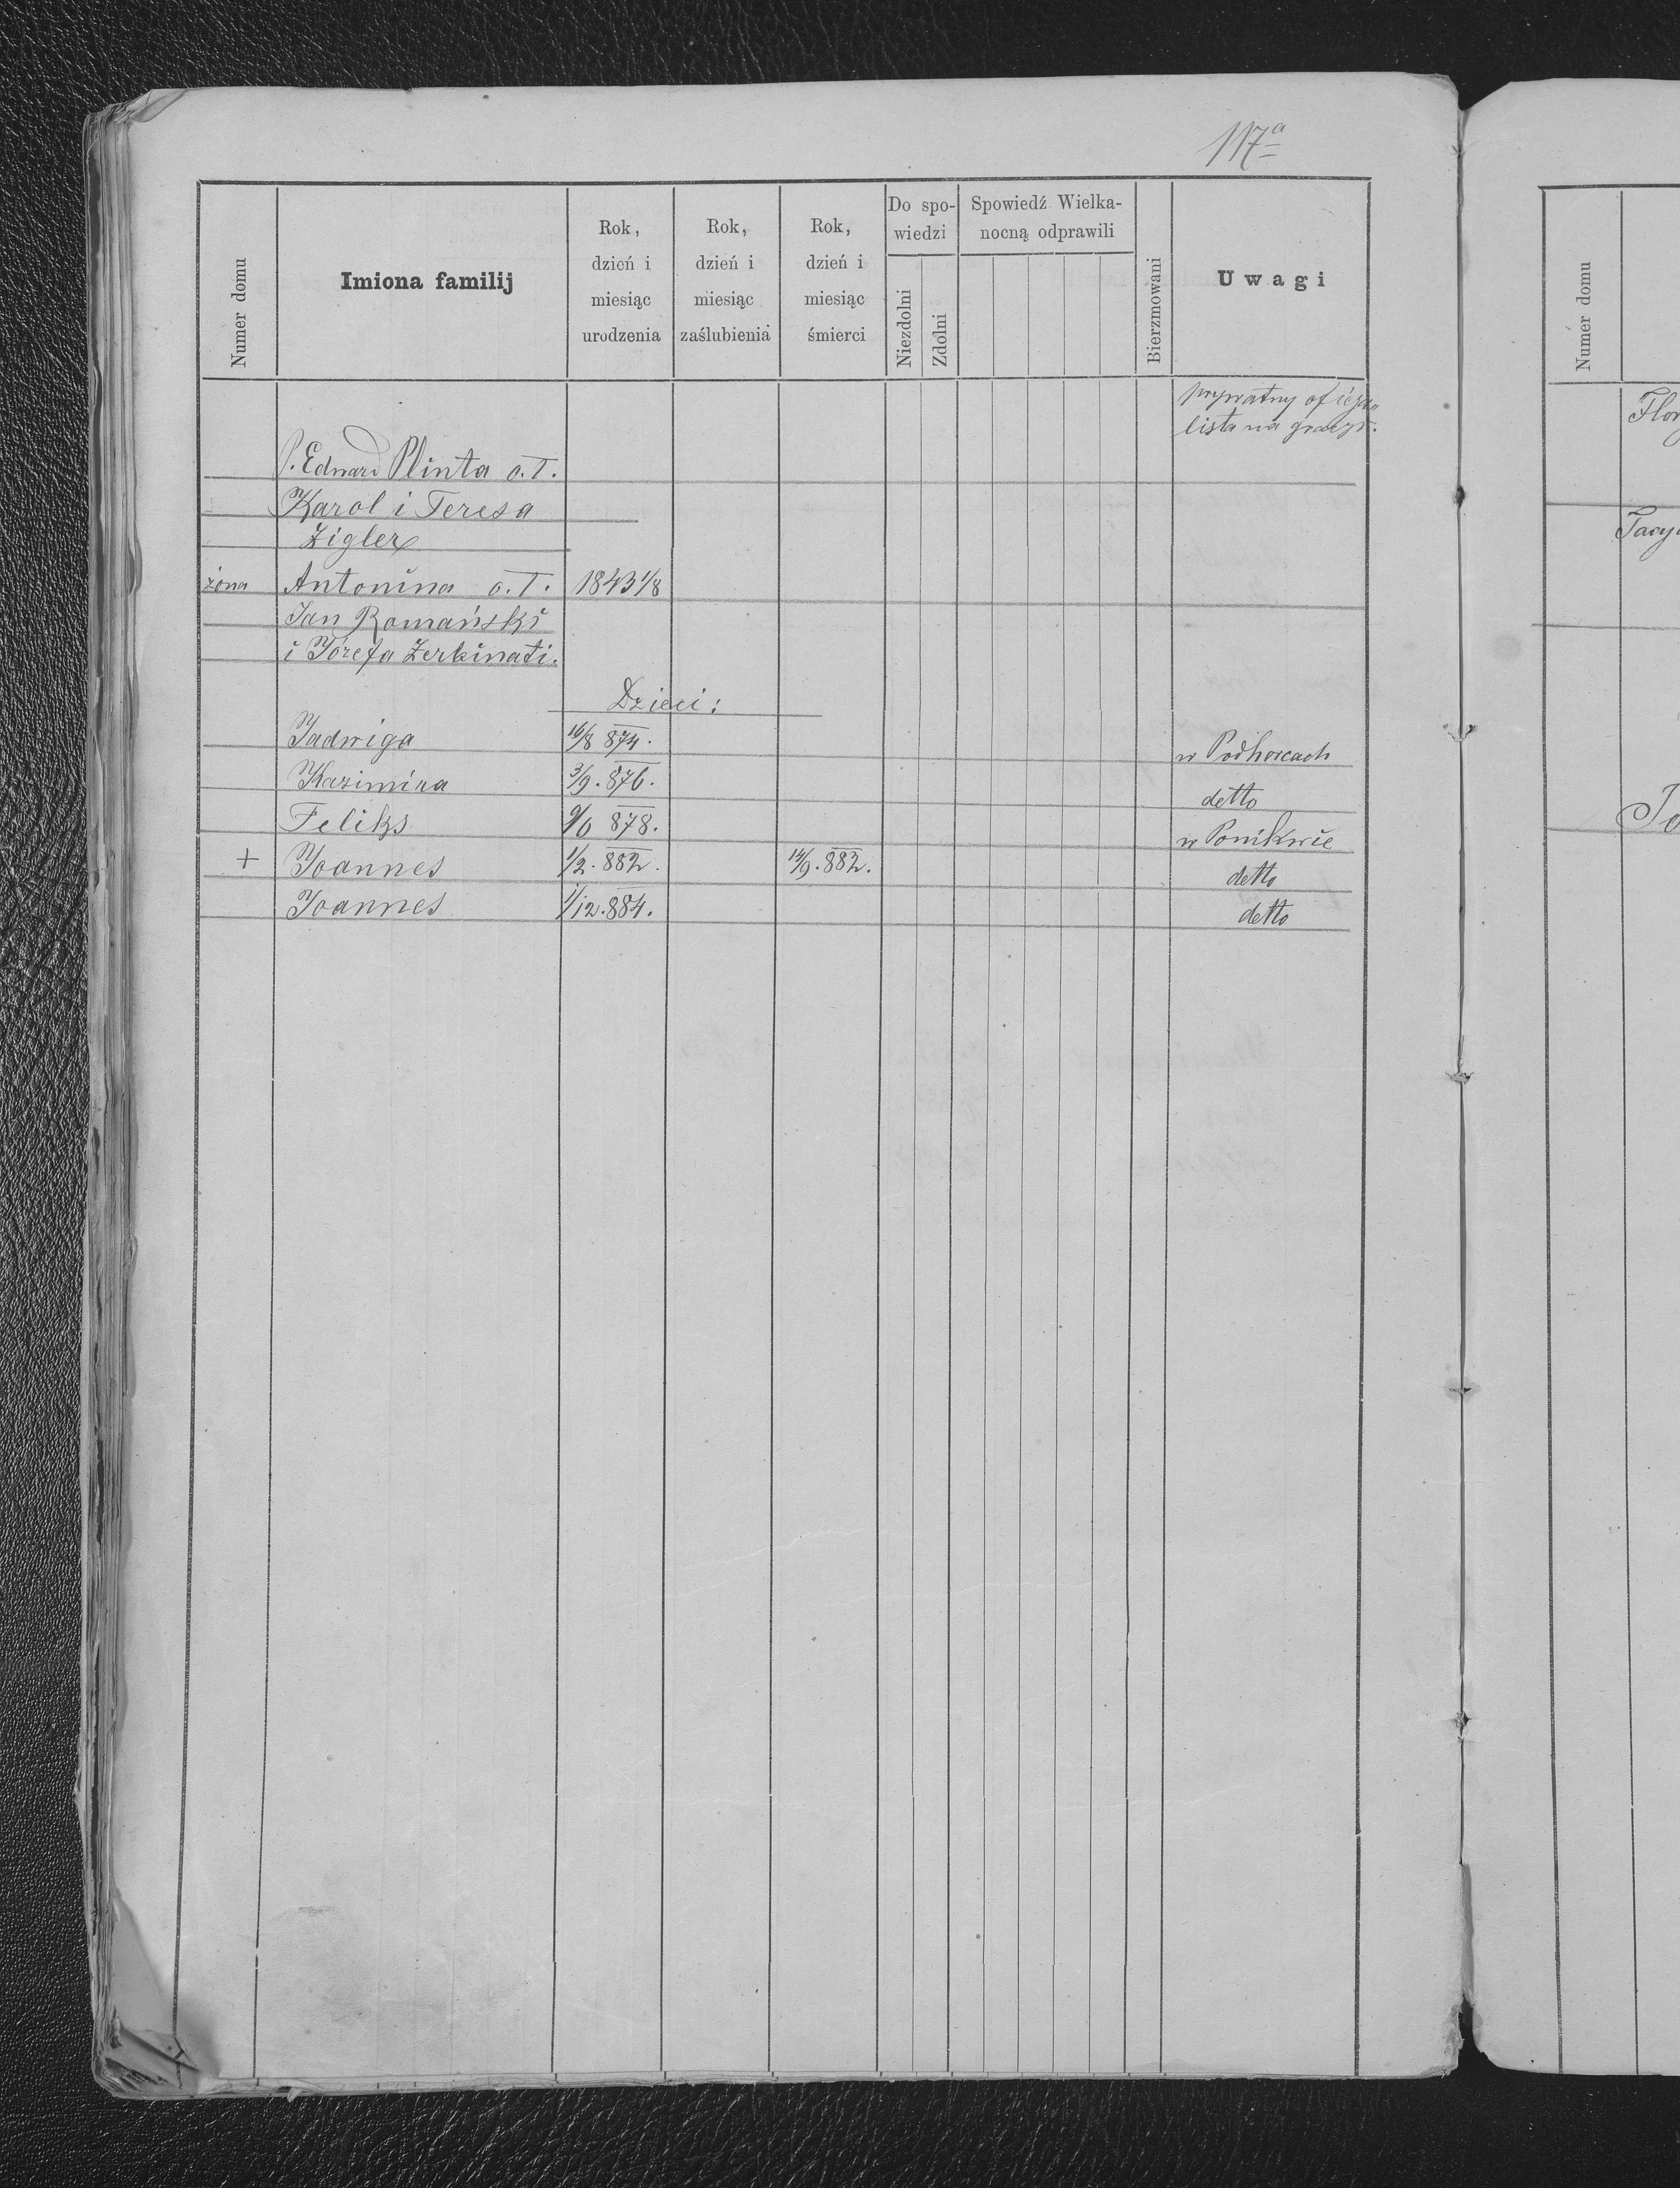 117a
Numer domu | Imiona familij | Rok, dzień i miesiąc urodzenia | Rok, dzień i miesiąc zaślubienia | Rok, dzień i miesiąc śmierci | Do spowiedzi | Niezdolni | Zdolni | Spowiedź Wielkanocną odprawili | Bierzmowani | Uwagi
prywatny oficya
lista na
P. Edward Plinta o. T.
Karol i Teresa
Zigler
żona Antonina o. T. 1843 1/8
Jan Romański
i Józefa Zerbinati.
Dzieci:
Jadwiga 16/8 874. w Podhorcach
Kazimira 3/9. 876. detto
Feliks 878. w Ponikwie
+ Joannes 1/2. 882. 14/9. 882. detto
Joannes 1/12. 884. detto
Numer domu
Flor
Jacy
Jo